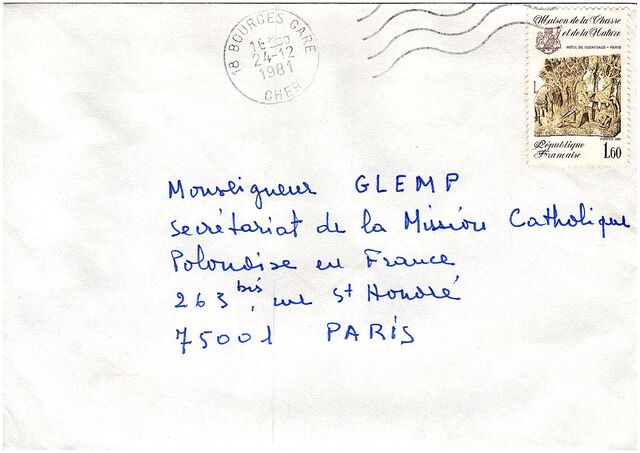 18 BOURGES GARE
16H30
24-12
1981
CHER
Maison de la Chasse
et de la Nature
HOTEL DE GUENEGAUD - PARIS
République
Française
1,60
Monseigneur GLEMP
secrétariat de la Mission Catholique
Polonaise en France
263 bis, rue St Honoré
75001 PARIS